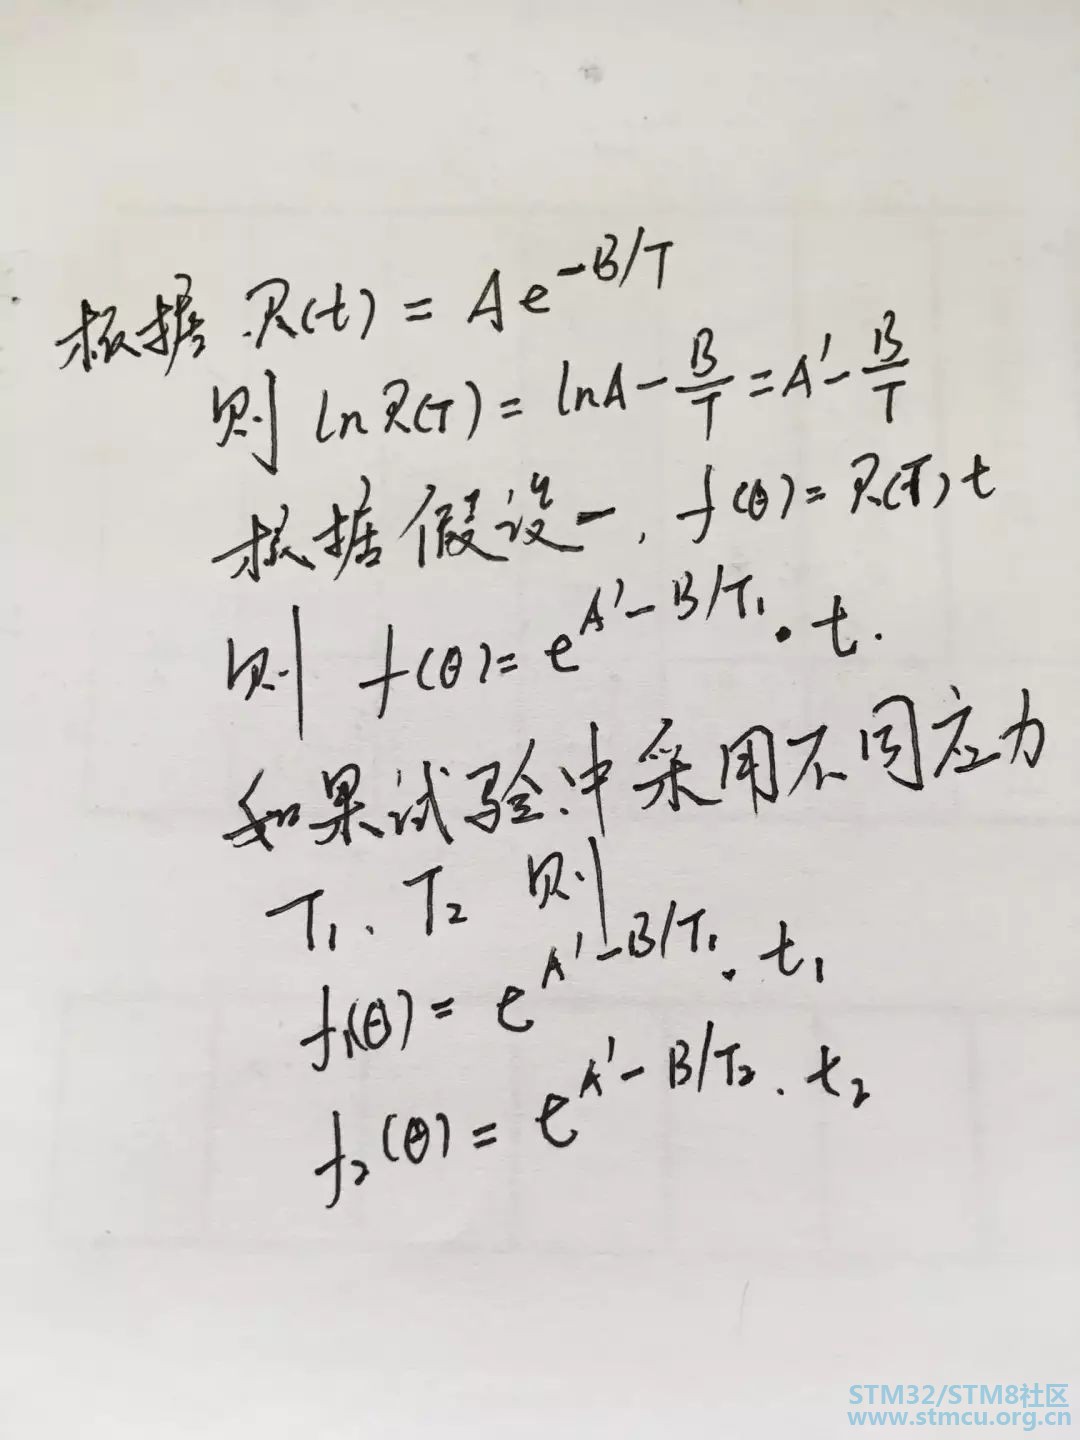 根据 R(t) = Ae^{-B/T}
则 ln R(T) = lnA - B/T = A' - B/T
根据假设一, f(θ) = R(T) t
则 f(θ) = e^{A' - B/T₁} · t.
如果试验中采用不同应力
T₁、T₂ 则
f₁(θ) = e^{A' - B/T₁} · t₁
f₂(θ) = e^{A' - B/T₂} · t₂
STM32/STM8社区
www.stmcu.org.cn